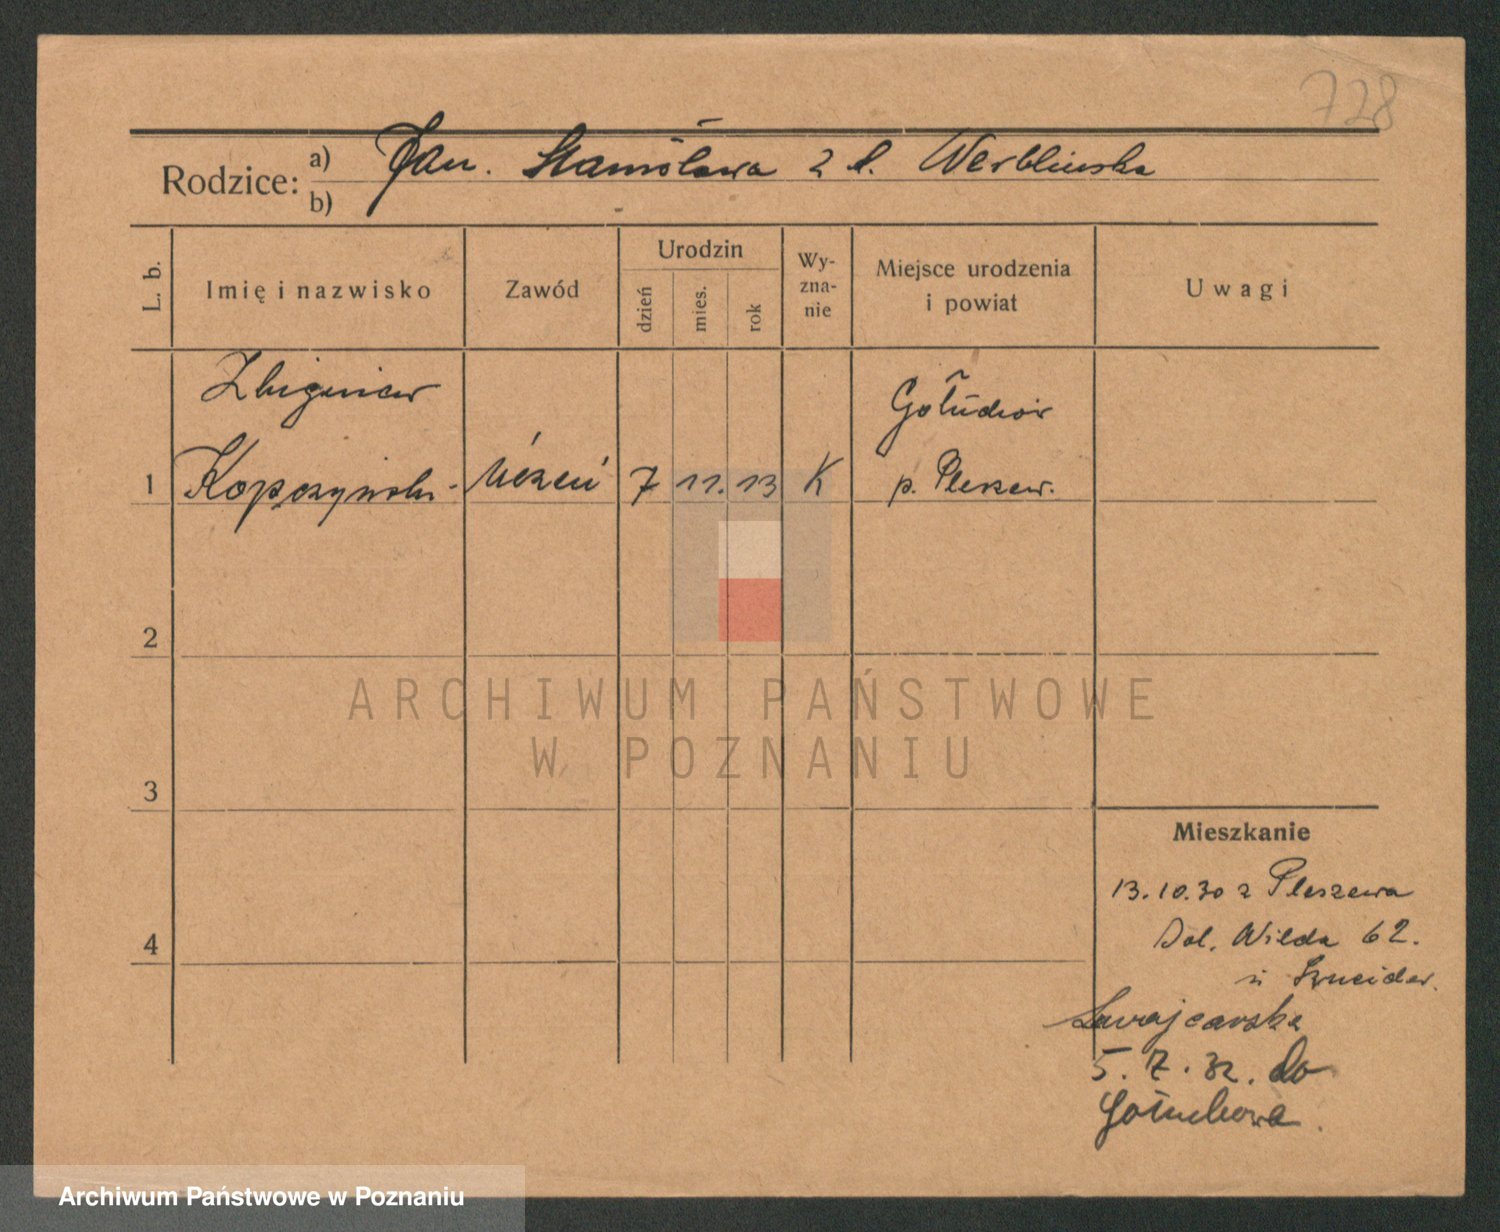 728
Rodzice: a) Jan. Stanisława z d. Werblinska
b)
L. b. Imię i nazwisko Zawód Urodzin dzień mies. rok Wy-zna-nie Miejsce urodzenia i powiat Uwagi
Zbigniew Gołuchów
1 Kopczyński Uczeń 7 11. 13 K p. Pleszew.
2
ARCHIWUM PAŃSTWOWE
W POZNANIU
3
Mieszkanie
13.10.30 z Pleszewa
4
Dol. Wilda 62.
u Szneider.
Szwajcarska
5. 7. 32. do
Gołuchowa.
Archiwum Państwowe w Poznaniu